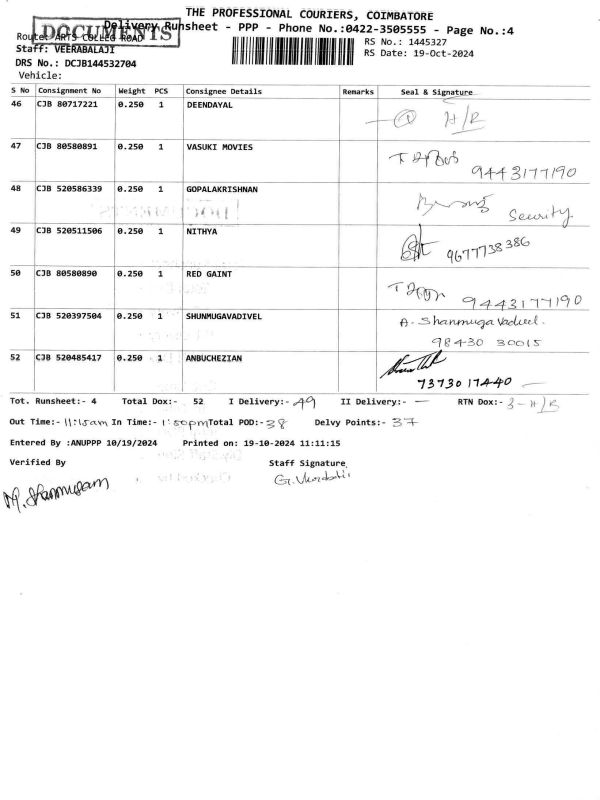 THE PROFESSIONAL COURIERS, COIMBATORE
Delivery Runsheet - PPP - Phone No.:0422-3505555 - Page No.:4
DOCUMENTS
Route: ARTS COLLEG ROAD
RS No.: 1445327
Staff: VEERABALAJI
RS Date: 19-Oct-2024
DRS No.: DCJB144532704
Vehicle:
S No Consignment No Weight PCS Consignee Details Remarks Seal & Signature
46 CJB 80717221 0.250 1 DEENDAYAL H/R
47 CJB 80580891 0.250 1 VASUKI MOVIES
9443177190
48 CJB 520586339 0.250 1 GOPALAKRISHNAN
Security
49 CJB 520511506 0.250 1 NITHYA
9677738386
50 CJB 80580890 0.250 1 RED GAINT
9443177190
51 CJB 520397504 0.250 1 SHUNMUGAVADIVEL A. Shanmuga Vadivel.
98430 30015
52 CJB 520485417 0.250 1 ANBUCHEZIAN
7373017440
Tot. Runsheet:- 4 Total Dox:- 52 I Delivery:- 49 II Delivery:- — RTN Dox:- 3 - H/R
Out Time:- 11:15am In Time:- 1:50pm Total POD:- 38 Delvy Points:- 37
Entered By :ANUPPP 10/19/2024 Printed on: 19-10-2024 11:11:15
Verified By Staff Signature
M. Shanmugam